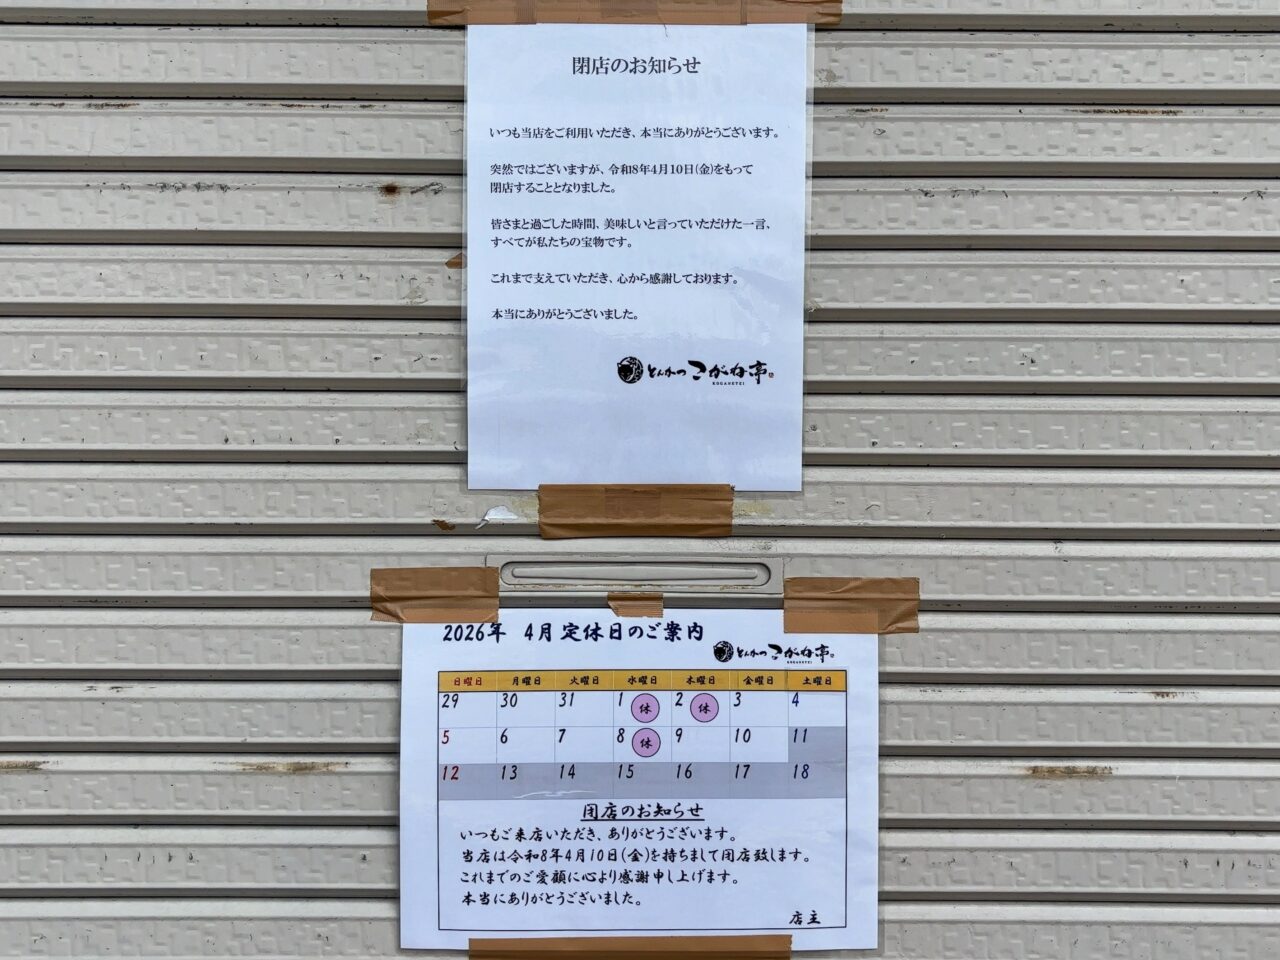 閉店のお知らせ
いつも当店をご利用いただき、本当にありがとうございます。
突然ではございますが、令和8年4月10日(金)をもって
閉店することとなりました。
皆さまと過ごした時間、美味しいと言っていただけた一言、
すべてが私たちの宝物です。
これまで支えていただき、心から感謝しております。
本当にありがとうございました。
とんかつ こがね亭
KOGANETEI
2026年 4月 定休日のご案内
とんかつ こがね亭
KOGANETEI
日曜日 月曜日 火曜日 水曜日 木曜日 金曜日 土曜日
29 30 31 1 休 2 休 3 4
5 6 7 8 休 9 10 11
12 13 14 15 16 17 18
閉店のお知らせ
いつもご来店いただき、ありがとうございます。
当店は令和8年4月10日(金)を持ちまして閉店致します。
これまでのご愛顧に心より感謝申し上げます。
本当にありがとうございました。
店主